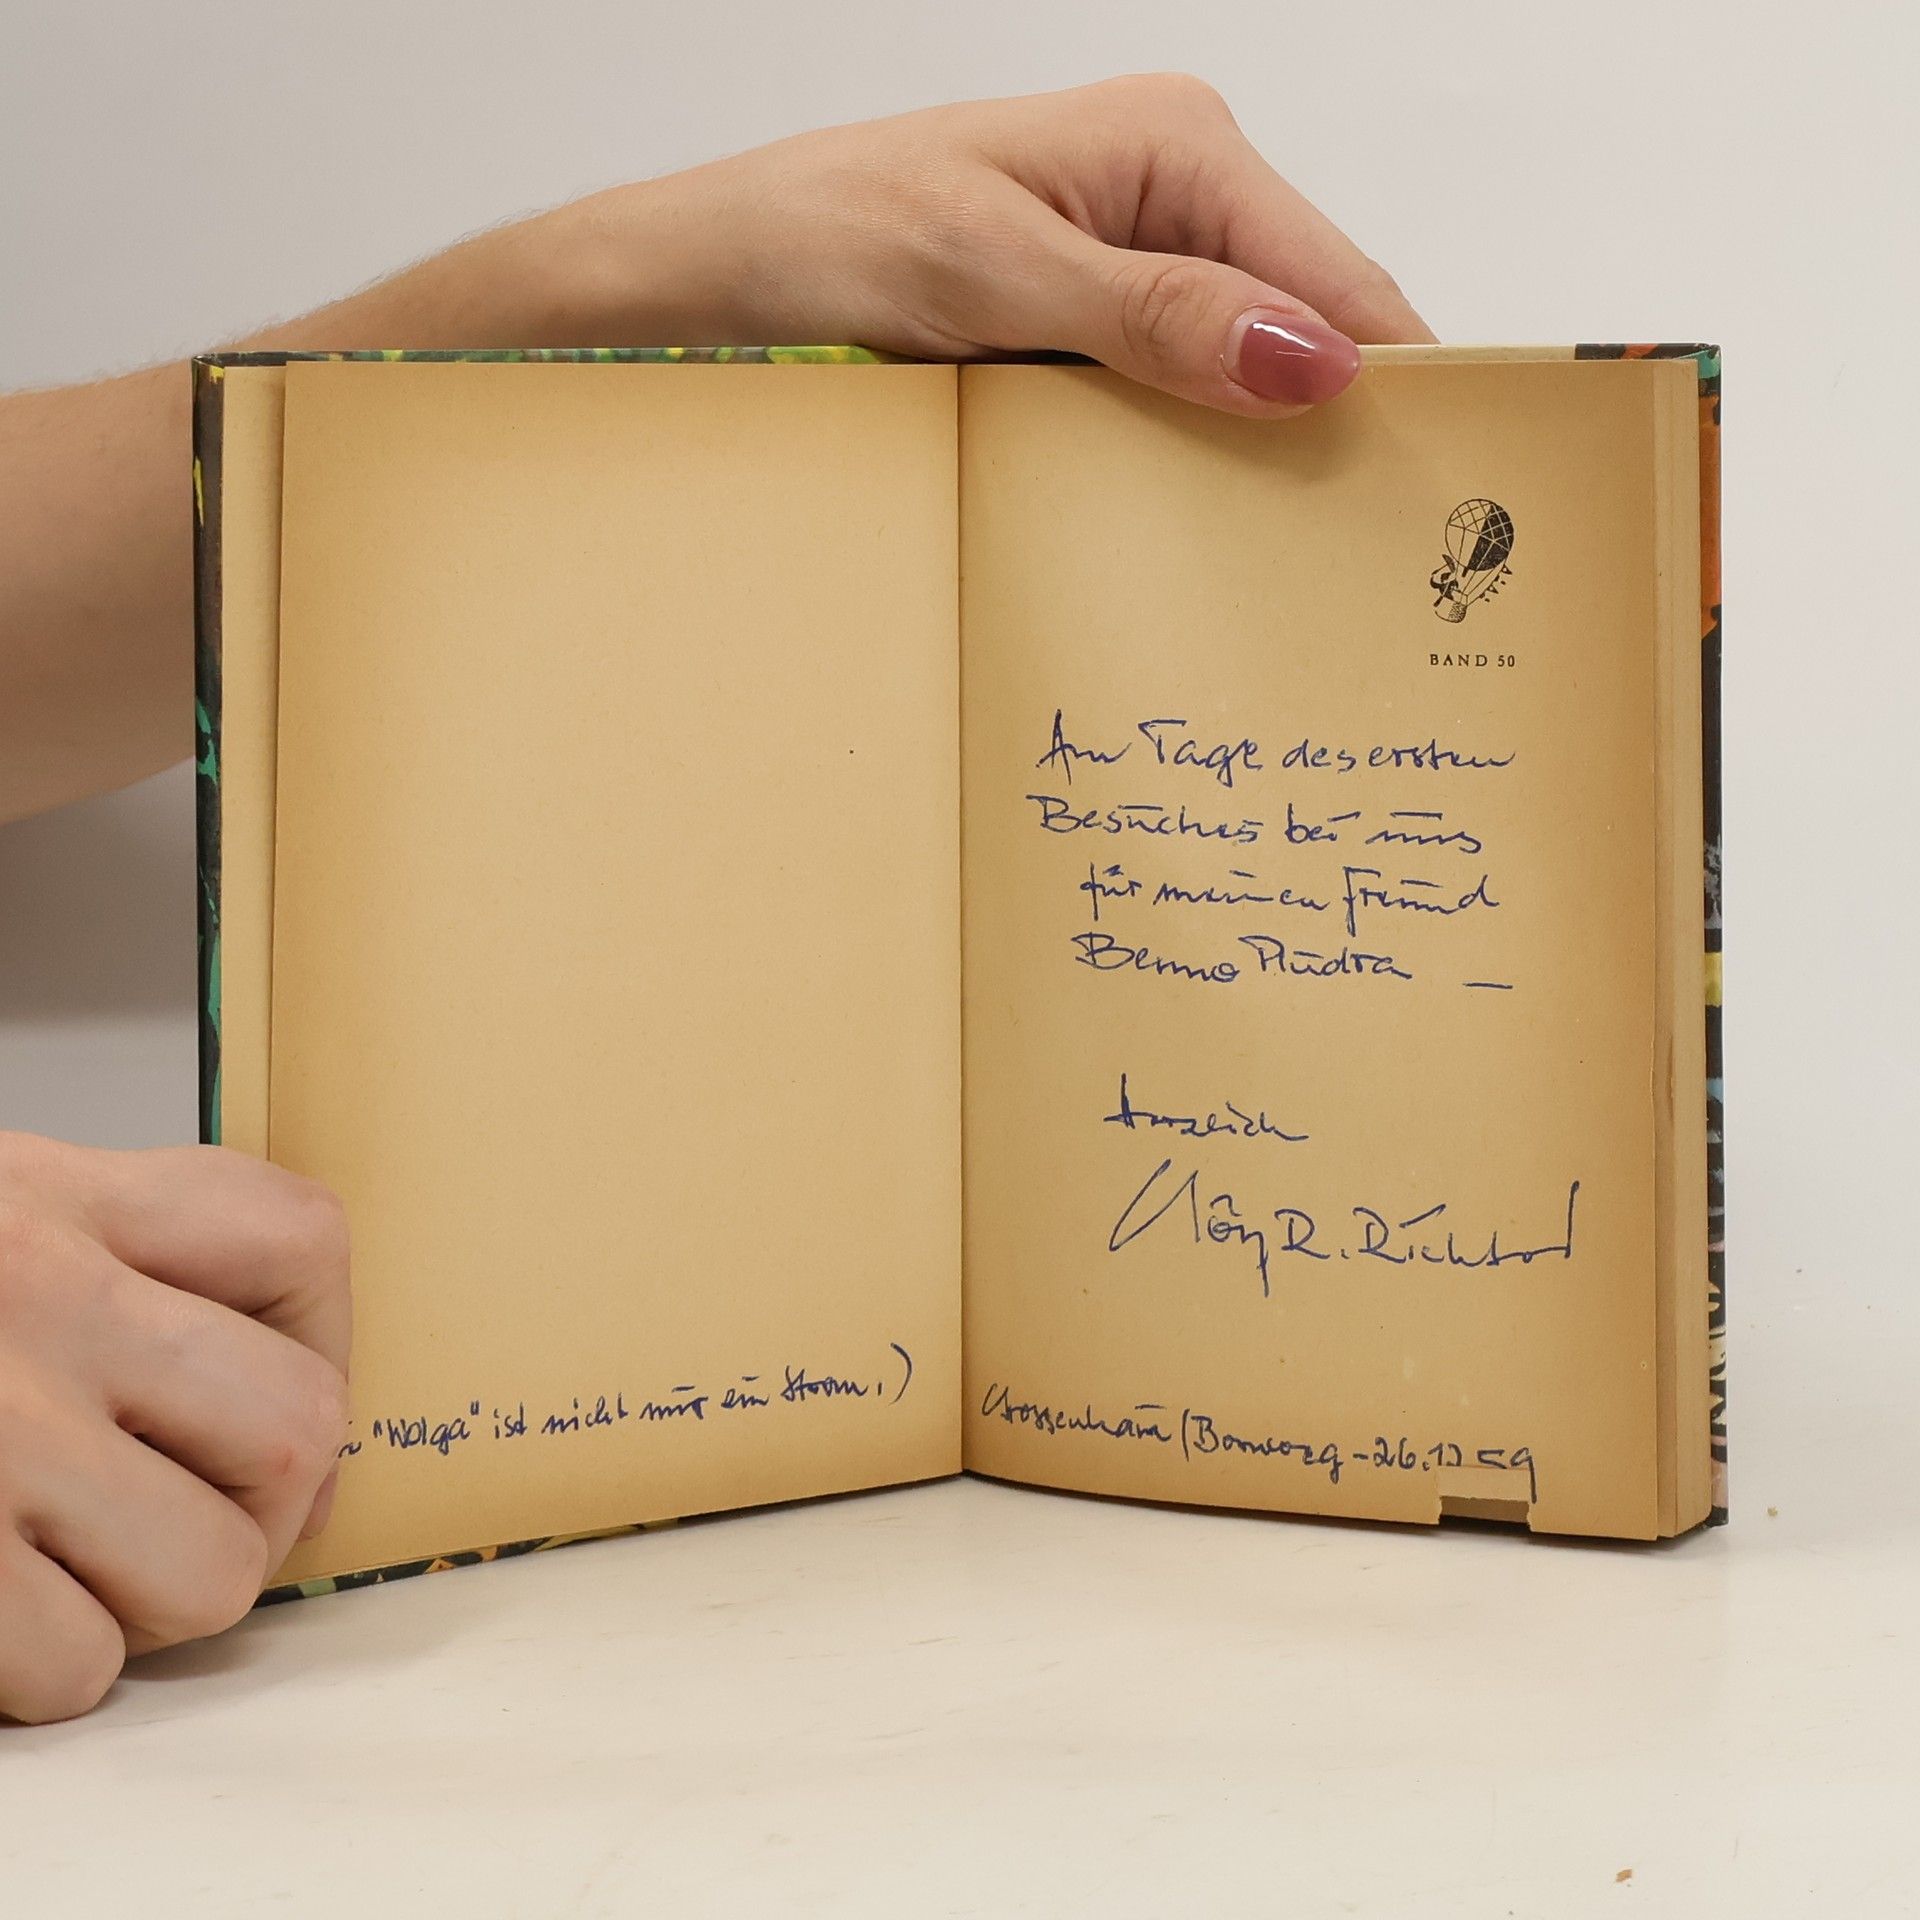 "Wolga" ist nicht nur ein Strom.)
BAND 50
Am Tage des ersten
Besuches bei uns
für meinen Freund
Benno Pludra —
Herzlich
Götz R. Richter
Grossenhain